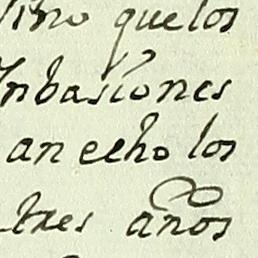 vino que los
Inbasiones
an echo los
tres años